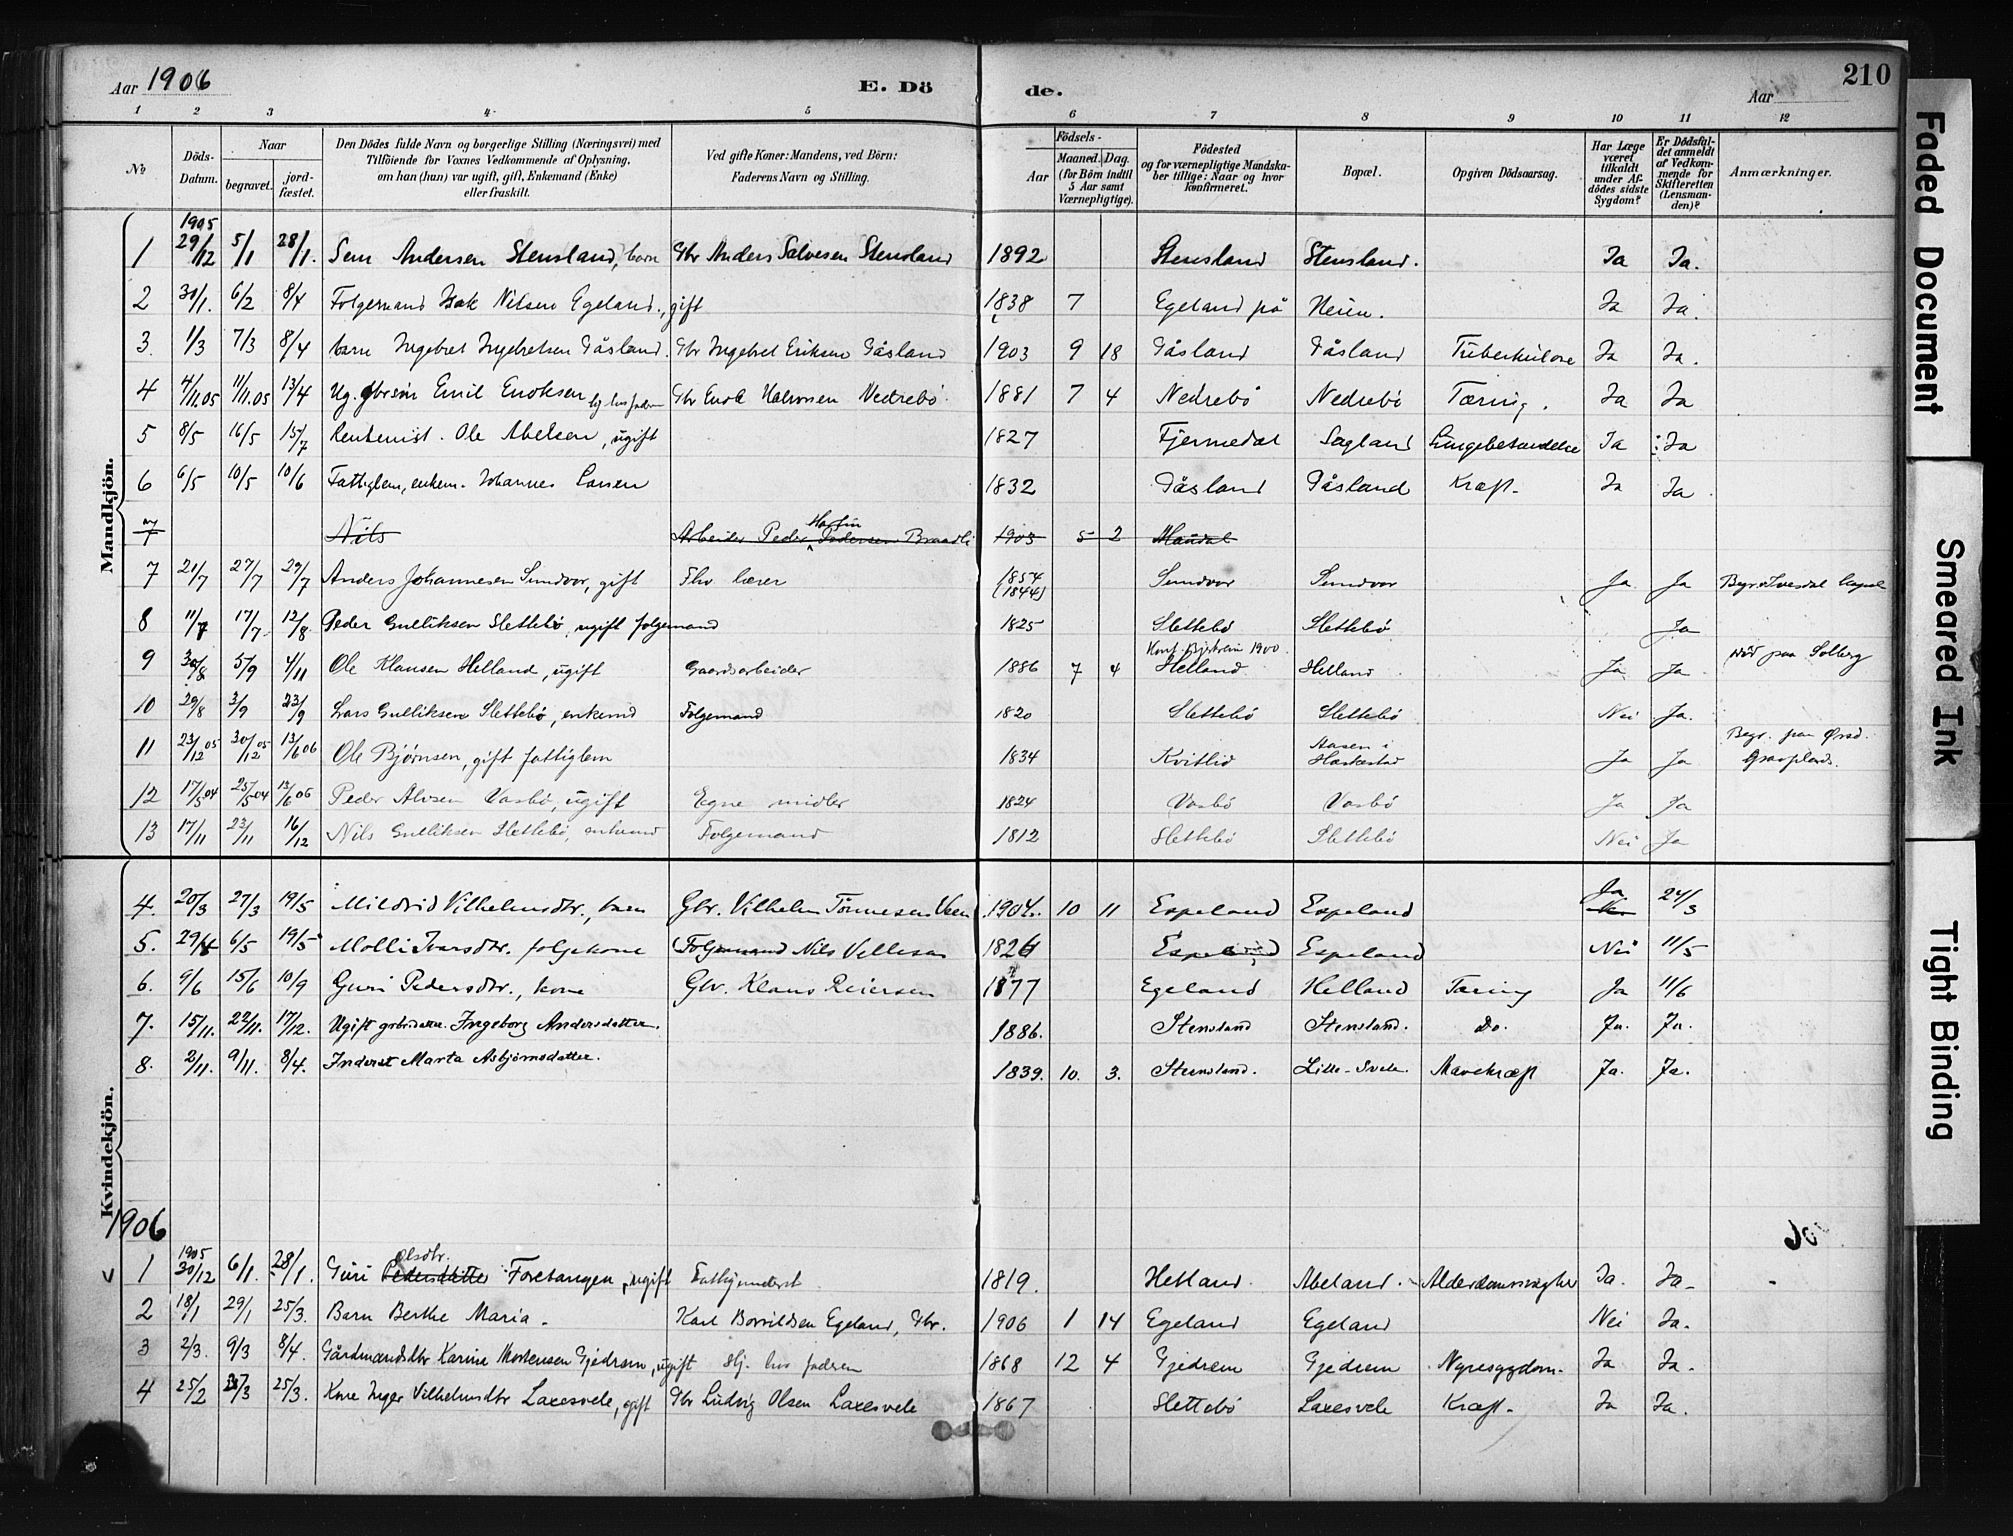 Aar 1906 E. Dö de. Aar 210
1 2 3 4 5 6 7 8 9 10 11 12
No Döds-Datum. Naar begravet. jord-fæstet. Den Dödes fulde Navn og borgerlige Stilling (Næringsvei) med Tilföiende for Voxnes Vedkommende af Oplysning, om han (hun) var ugift, gift, Enkemand (Enke) eller fraskilt. Ved gifte Koner: Mandens, ved Börn: Faderens Navn og Stilling. Födsels- Aar Maaned. Dag. (for Börn indtil 5 Aar samt Værnepligtige). Födested og for værnepligtige Mandska-ber tillige: Naar og hvor konfirmeret. Bopæl. Opgiven Dödsaarsag. Har Læge været tilkaldt under Af-dödes sidste Sygdom? Er Dödsfal-det anmeldt af Vedkom-mende for Skifteretten (Lensman-den)? Anmærkninger.
Mandkjön.
1905
1 29/12 5/1 28/1. Andersen Stensland, barn Gbr Anders Salvesen Stensland 1892 Stensland Stensland. Ja Ja.
2 30/1. 6/2 8/4 Folgemand Isak Nilsen Egeland., gift 1838 7 Egeland på Heien. Ja Ja.
3. 1/3 7/3 8/4 barn Ingebret Ingebretsen Gåsland. Gbr Ingebret Eriksen Gåsland 1903 9 18 Gåsland Gåsland Tuberkulose Ja Ja.
4 4/11.05 11/11.05 13/4 Ug. gbrsön Emil Enoksen hj. hos faderen Gbr Enok Halvorsen Nedrebö. 1881 7 4 Nedrebö Nedrebö Tæring. Ja Ja
5 8/5 16/5 15/7 Rentenist. Ole Abelsen, ugift 1827 Fjermedal Sagland Lungebetændelse Ja Ja
6 6/5 10/5 10/6 Fattiglem, enkem. Johannes Larsen 1832 Gåsland Gåsland Kræft. Ja Ja
7 Nils Arbeider Peder Martin Pedersen Braadli 1905 5 2 Maudal
7 21/7 27/7 29/7 Anders Johannesen Sundvor, gift Fhv. lærer 1854 (1844) Sundvor Sundvor Ja Ja Begr. Ivesdal Kapel
8 11/7 17/7 12/8. Peder Gulliksen Slettebö, ugift folgemand 1825 Slettebö Slettebö Ja
9 30/8 5/9 4/11 Ole Klausen Helland, ugift Gaardsarbeider 1886 7 4 Konf. Bjerkreim 1900. Helland Helland Ja Ja död paa Solberg
10 29/8 3/9 23/9 Lars Gulliksen Slettebö, enkemd Folgemand 1820 Slettebö Slettebö Nei Ja.
11 23/12 05 30/12 05 13/6 06 Ole Bjørnsen, gift fattiglem 1834 Kvitlid Aasen i Heskestad Ja Ja Begr. paa Ørsd. Gravplads.
12 17/5 04 25/5 04 13/6 06 Peder Alvsen Vasbö, ugift Egne midler 1824 Vasbö Vasbö Ja Ja
13 17/11 23/11 16/12 Nils Gulliksen Slettebö, enkemd Folgemand 1812 Slettebö Slettebö Nei Ja
Kvindekjön.
4. 20/3 27/3 19/5 Mildrid Vilhelmsdtr., barn Gbr. Vilhelm Tönnesen Veen 1904. 10 11 Espeland Espeland Ja 24/3
5. 29/4 6/5 19/5 Molli Ivarsdtr. folgekone Folgemand Nils Vellesen 1826 Espeland Espeland Nei 11/5
6. 9/6 15/6 10/9 Guri Pedersdtr., kone Gbr. Klaus Reiersen 1877 Egeland Helland Tæring Ja 11/6
7. 15/11. 22/11. 17/12. Ugift gbrdatter. Ingeborg Andersdatter. 1886. Stensland Stensland. Do. Ja. Ja.
8. 2/11. 9/11. 8/4. Inderst Marta Asbjörnsdatter. 1839. 10. 3. Stensland. Lille-Svele. Mavekræft Ja. Ja.
1906
1905
1 30/12 6/1. 28/1. Guri Pedersdatter Olsdtr. Foretangen, ugift 1819. Hetland. Abeland. Alderdomssvaghed Ja. Ja.
2 18/1 29/1 25/3. Barn Berthe Maria. Karl Bowildsen Egeland, Gbr. 1906 1 14 Egeland Egeland Nei Ja.
3 2/3. 9/3 8/4. Gårdmandsdtr Karine Mortensen Gjedrem, ugift Hj. hos faderen 1868 12 4 Gjedrem Gjedrem Nyresygdom. Ja Ja.
4 25/2 /3 25/3. Kone Inger Vilhelmsdtr Laxesvele, gift Gbr Ludvig Olsen Laxesvele 1867 Slettebö Laxesvele Kræft. Ja Ja.
Faded Document
Smeared Ink
Tight Binding